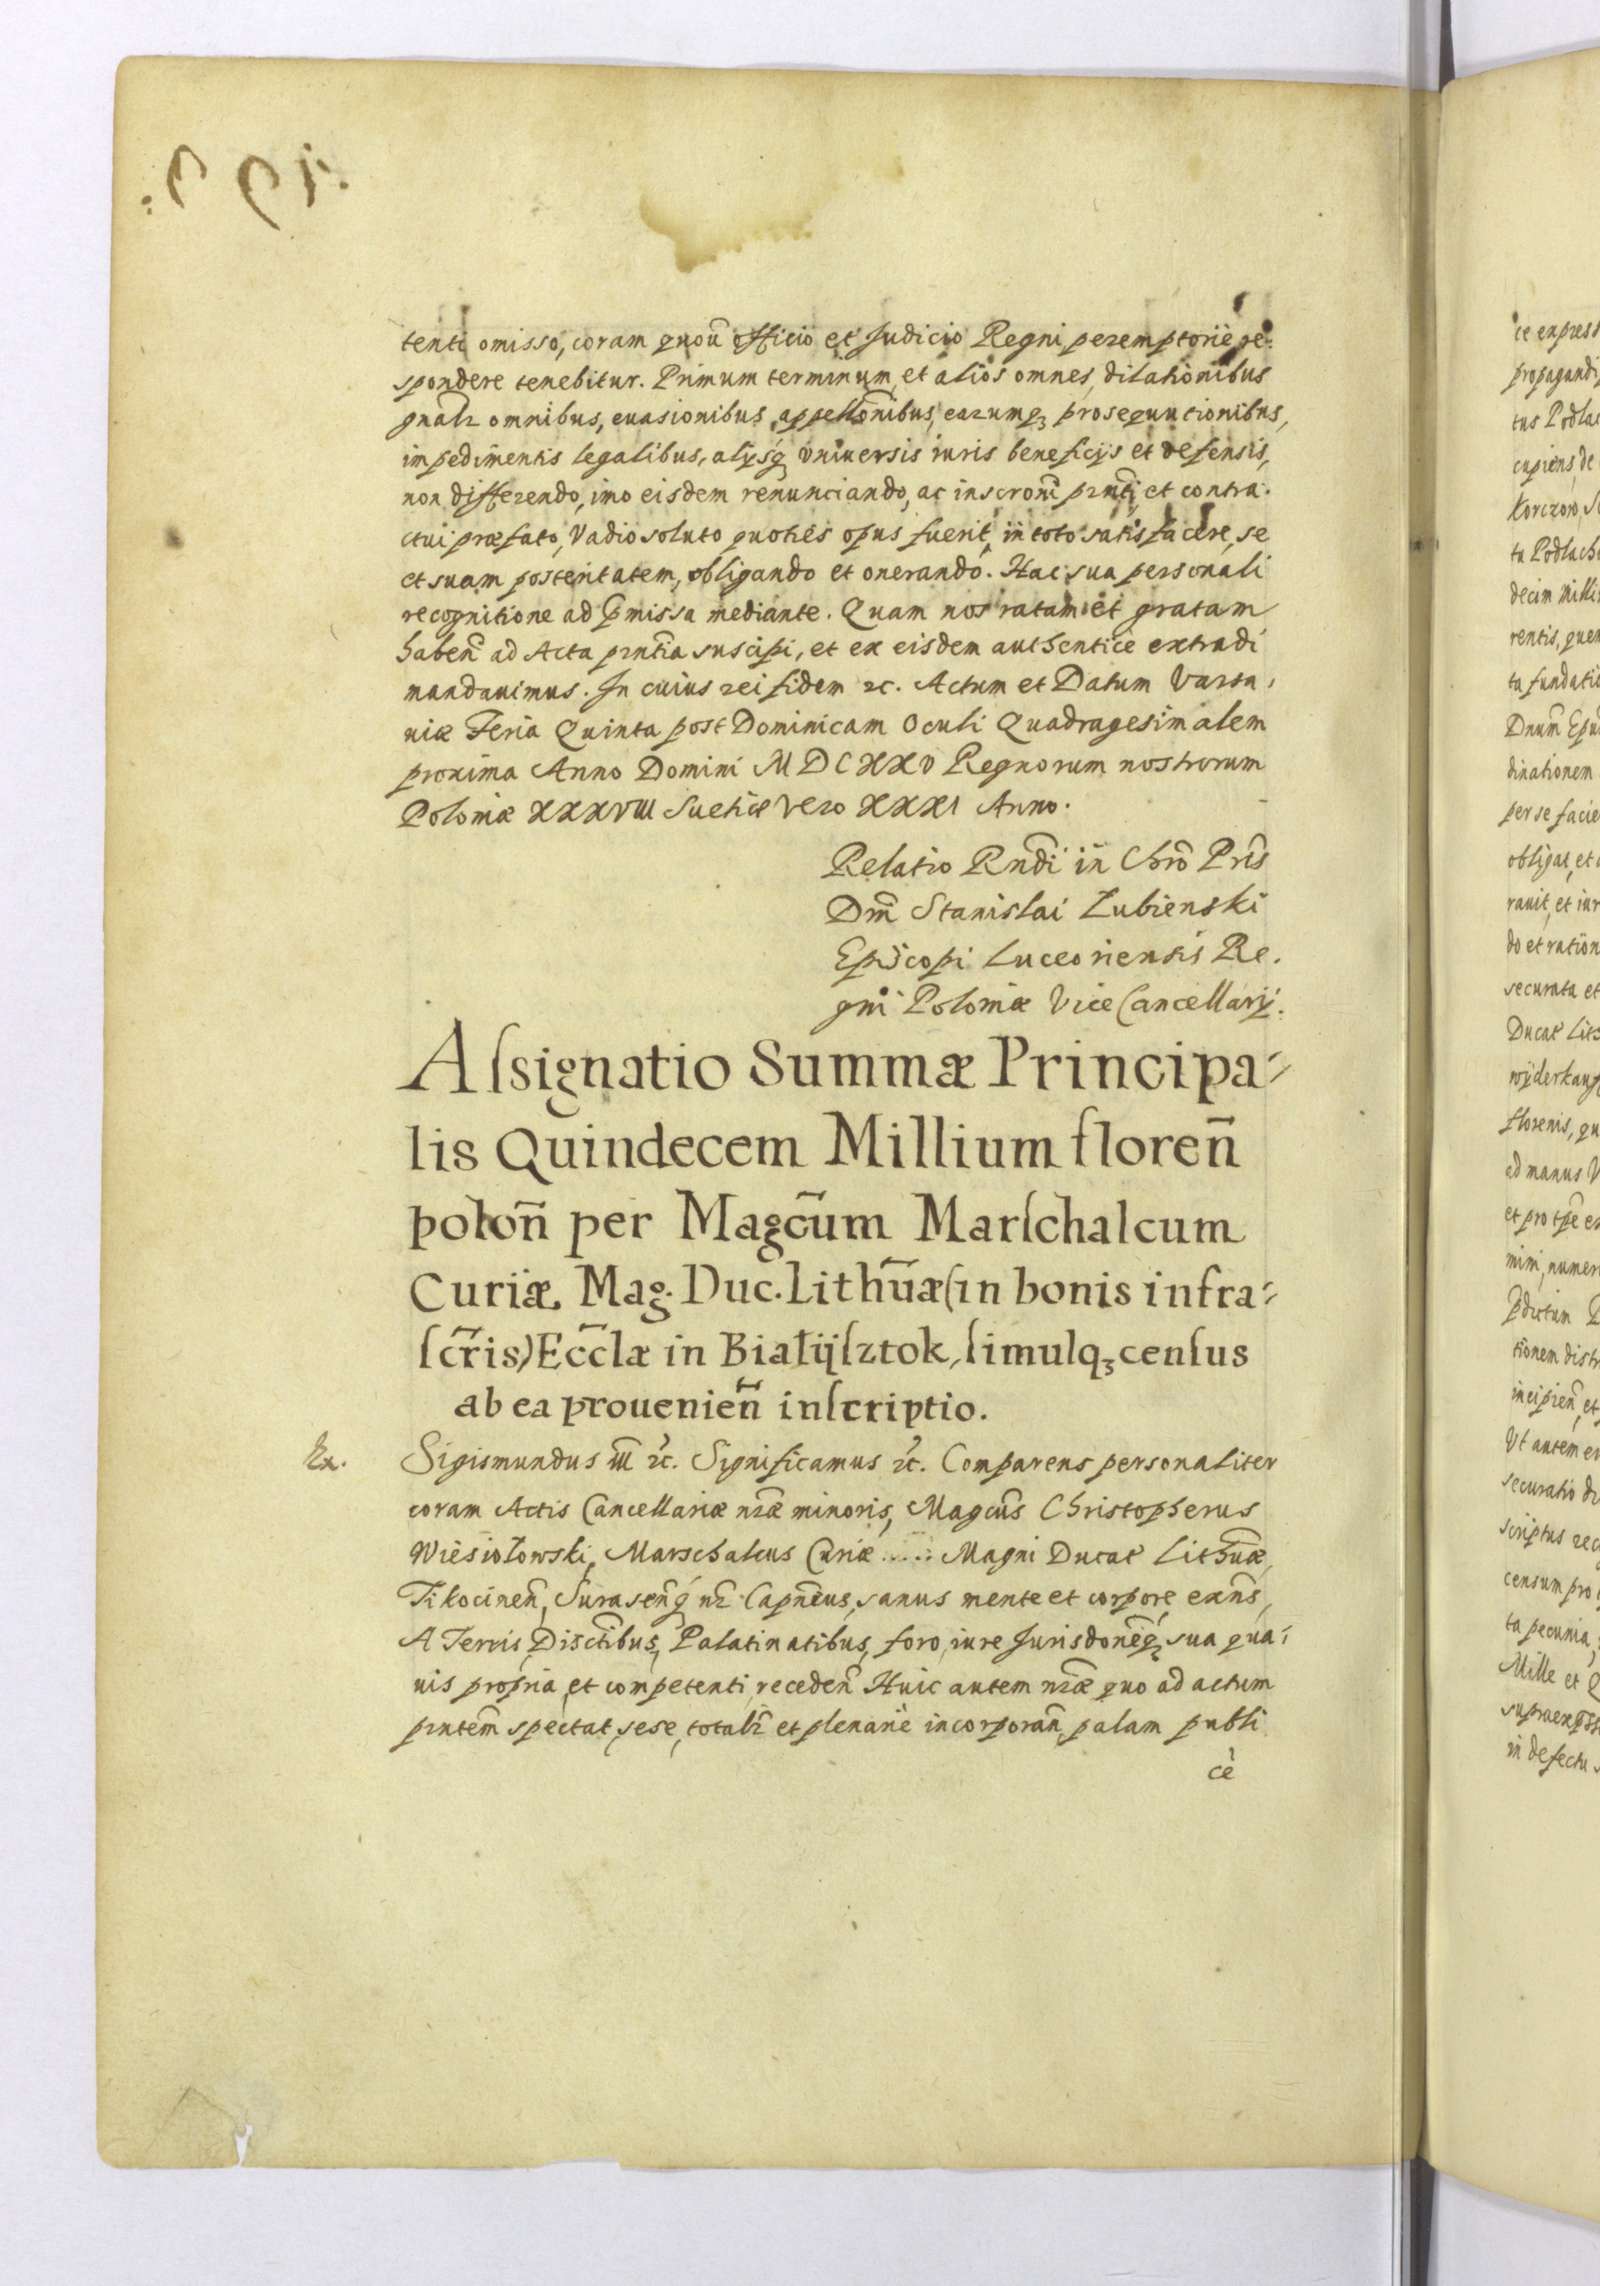 tenti omisso, coram quoũ officio et Judicio Regni peremptoriè re:
spondere tenebitur. Primum terminum, et alios omnes, dilationibus
gnalr omnibus, euasionibus, appellõnibus, earumq₃ prosequutionibus,
impedimentis legalibus, alijsq́ vniuersis iuris beneficijs et defensis,
non differendo, imo eisdem renunciando, ac inscrōni prñti, et contra.
ctui præfato, Vadio soluto quotiès opus fuerit, in toto satisfacere, se
et suam posteritatem, obligando et onerando. Hac sua personali
recognitione ad p̃missa mediante. Quam nos ratam et gratam
habeñ ad Acta prñtia suscipi, et ex eisdem authenticè extradi
mandauimus. In cuius rei fidem ꝛc. Actum et Datum Varsa,
uiæ Feria Quinta post Dominicam Oculi Quadragesimalem
proxima Anno Domini MDCXXV Regnorum nostrorum
Poloniæ XXXVIII Suetiæ Vero XXXI Anno.
Relatio Rñdi in Chrõ Pris̃
Dñi Stanislai Łubienski
Episcopi Luceoriensis Re.
gni Poloniæ Vice Cancellarij.
Aſsignatio Summæ Principa-
lis Quindecem Millium floreñ
poloñ per Magc̃um Marſchalcum
Curiæ Mag. Duc. Lithũæ (in bonis infra-
ſcr̃is) Ecc̃læ in Białijſztok, ſimulq₃ cenſus
ab ea prouenieñ inſcriptio.
Sigismundus III ꝛc. Significamus ꝛc. Comparens personaliter
coram Actis Cancellariæ nr̃æ minoris, Magcũs Christopherus
Wiesiołowski, Marschalcus Curiæ ..... Magni Ducat Lithũæ,
Tikocineñ, Suraseñq́ nr̃ Capñeus, sanus mente et corpore exñs,
A Terris, Disctĩbus, Palatinatibus, foro, iure Jurisdonẽq₃ sua qua-
uis propria et competenti recedeñ Huic autem nr̃æ quo ad actum
prñtem spectat, sese, totalr̃ et plenariè incorporañ, palam publi
cè